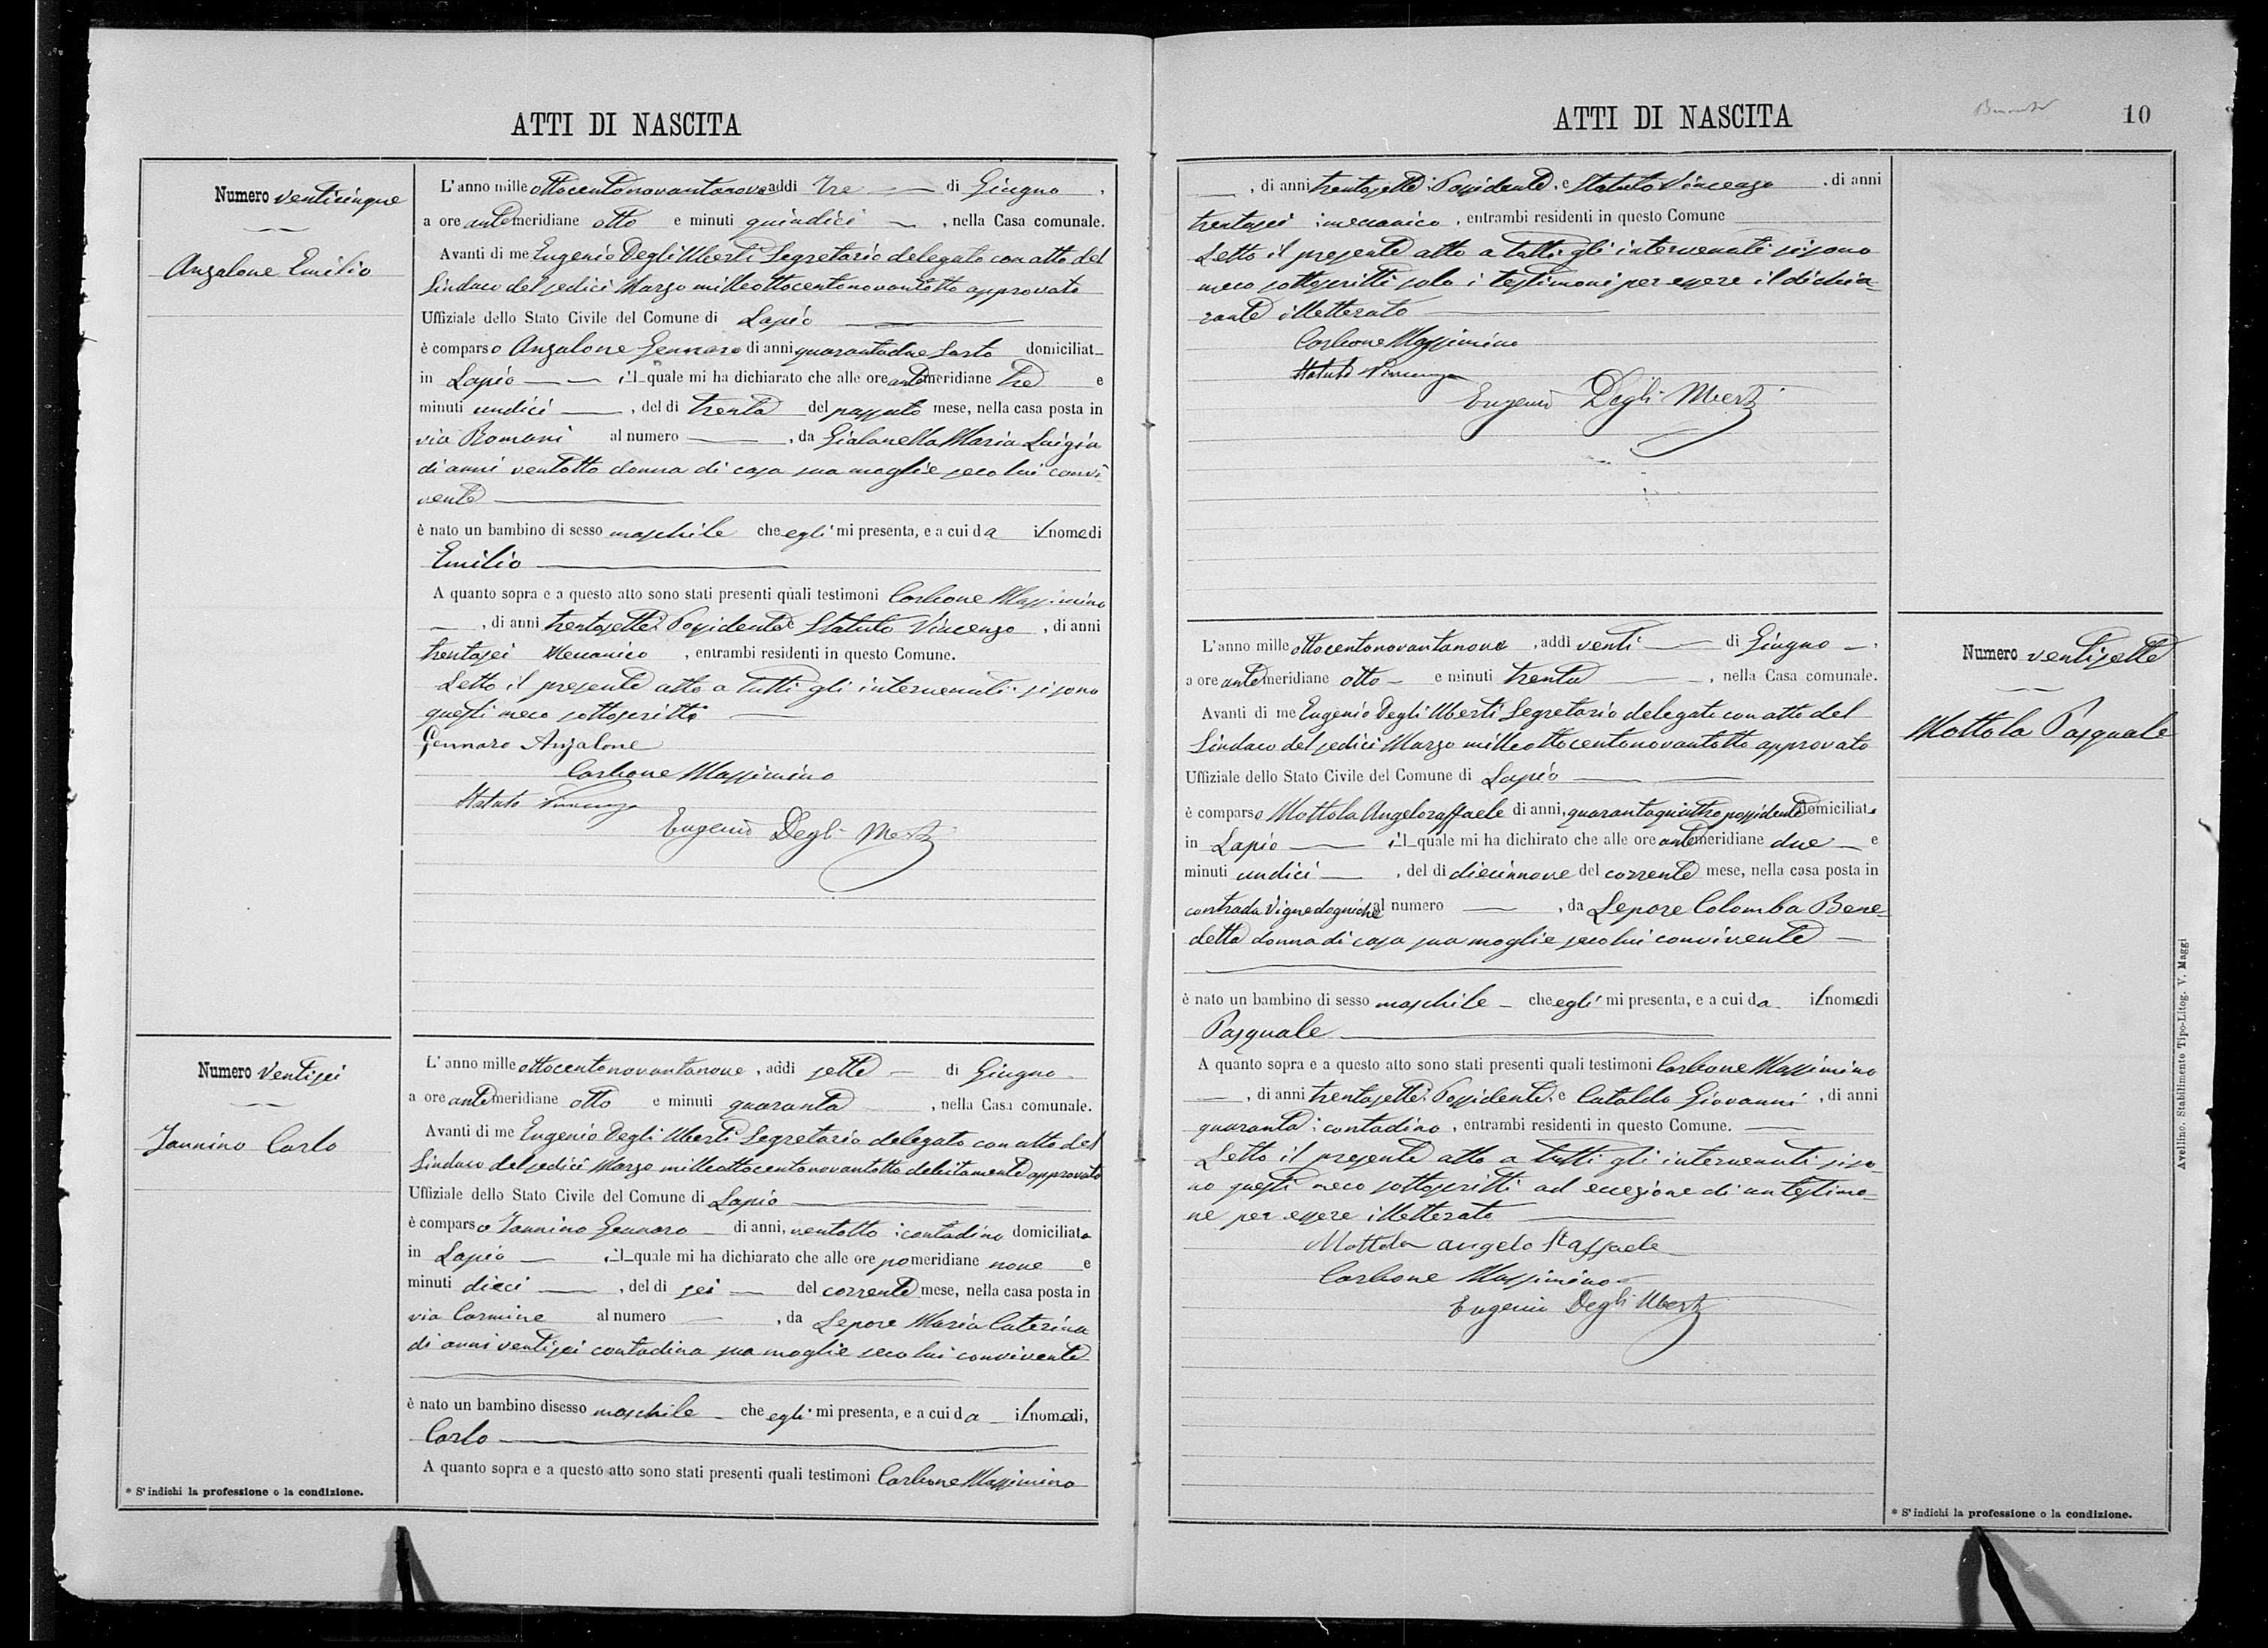 ATTI DI NASCITA
Numero venticinque
Anzalone Emilio
L'anno mille ottocentonovantanove addì tre di Giugno,
a ore antemeridiane otto e minuti quindici, nella Casa comunale.
Avanti di me Eugenio Degli Uberti Segretario delegato con atto del
Sindaco del sedici Marzo milleottocentonovantotto approvato
Uffiziale dello Stato Civile del Comune di Lapio
è comparso Anzalone Gennaro di anni quarantadue Sarto domiciliat
in Lapio il quale mi ha dichiarato che alle ore antemeridiane tre e
minuti undici, del dì trenta del passato mese, nella casa posta in
via Romani al numero , da Gialanella Maria Luigia
di anni ventotto donna di casa sua moglie seco lui convi-
vente
è nato un bambino di sesso maschile che egli mi presenta, e a cui da il nome di
Emilio
A quanto sopra e a questo atto sono stati presenti quali testimoni Carbone Massimino
, di anni trentasette Possidente e Statuto Vincenzo, di anni
trentasei Meccanico, entrambi residenti in questo Comune.
Letto il presente atto a tutti gli intervenuti si sono
questi meco sottoscritti
Gennaro Anzalone
Carbone Massimino
Statuto Vincenzo
Eugenio Degli Uberti
Numero ventisei
Iannino Carlo
L'anno mille ottocentonovantanove, addì sette di Giugno
a ore antemeridiane otto e minuti quaranta, nella Casa comunale.
Avanti di me Eugenio Degli Uberti Segretario delegato con atto del
Sindaco del sedici Marzo milleottocentonovantotto debitamente approvato
Uffiziale dello Stato Civile del Comune di Lapio
è comparso Iannino Gennaro di anni, ventotto contadino domiciliato
in Lapio il quale mi ha dichiarato che alle ore pomeridiane nove e
minuti dieci, del dì sei del corrente mese, nella casa posta in
via Carmine al numero , da Lepore Maria Caterina
di anni ventisei contadina sua moglie seco lui convivente
è nato un bambino di sesso maschile che egli mi presenta, e a cui da il nome di,
Carlo
A quanto sopra e a questo atto sono stati presenti quali testimoni Carbone Massimino
* S'indichi la professione o la condizione.
ATTI DI NASCITA
10
, di anni trentasette Possidente, e Statuto Vincenzo, di anni
trentasei meccanico, entrambi residenti in questo Comune
Letto il presente atto a tutti gli intervenuti si sono
meco sottoscritti solo i testimoni per essere il dichia-
rante illetterato
Carbone Massimino
Statuto Vincenzo
Eugenio Degli Uberti
Numero ventisette
Mottola Pasquale
L'anno mille ottocentonovantanove, addì venti di Giugno,
a ore antemeridiane otto e minuti trenta, nella Casa comunale.
Avanti di me Eugenio Degli Uberti Segretario delegato con atto del
Sindaco del sedici Marzo milleottocentonovantotto approvato
Uffiziale dello Stato Civile del Comune di Lapio
è comparso Mottola Angeloraffaele di anni, quarantaquattro possidente domiciliato
in Lapio il quale mi ha dichirato che alle ore antemeridiane due e
minuti undici, del dì diecinnove del corrente mese, nella casa posta in
contrada al numero , da Lepore Colomba Bene-
detta donna di casa sua moglie seco lui convivente
è nato un bambino di sesso maschile che egli mi presenta, e a cui da il nome di
Pasquale
A quanto sopra e a questo atto sono stati presenti quali testimoni Carbone Massimino
, di anni trentasette Possidente e Cataldo Giovanni, di anni
quaranta contadino, entrambi residenti in questo Comune.
Letto il presente atto a tutti gli intervenuti si so-
no questi meco sottoscritti ad eccezione di un testimo-
ne per essere illetterato
Mottola angelo Raffaele
Carbone Massimino
Eugenio Degli Uberti
* S'indichi la professione o la condizione.
Avellino. Stabilimento Tipo-Litog. V. Maggi